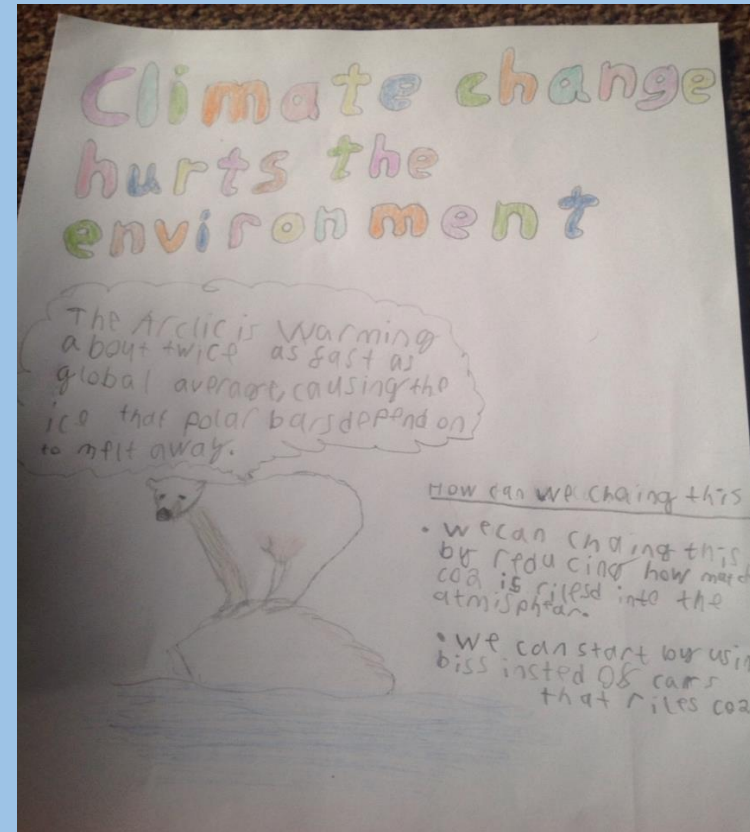 Climate change
hurts the
environment
The Arctic is warming
about twice as fast as
global average, causing the
ice that polar bars depend on
to melt away.
How can we chaing this
• we can chaing this
by reducing how much
co2 is rilesd into the
atmisphear.
• we can start by usin
biss insted of cars
that riles co2